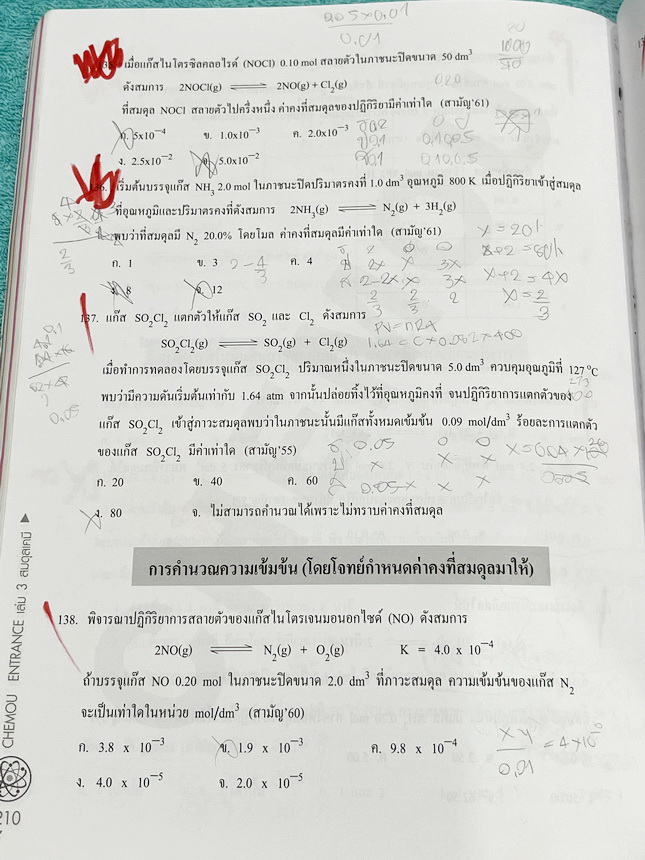 0.05 x 0.01
0.01
เมื่อแก๊สไนโตรซิลคลอไรด์ (NOCl) 0.10 mol สลายตัวในภาชนะปิดขนาด 50 dm³
ดังสมการ 2NOCl(g) ⇌ 2NO(g) + Cl₂(g)
ที่สมดุล NOCl สลายตัวไปครึ่งหนึ่ง ค่าคงที่สมดุลของปฏิกิริยามีค่าเท่าใด (สามัญ'61)
ก. 5x10⁻⁴ ข. 1.0x10⁻³ ค. 2.0x10⁻³
ง. 2.5x10⁻² จ. 5.0x10⁻²
136. เริ่มต้นบรรจุแก๊ส NH₃ 2.0 mol ในภาชนะปิดปริมาตรคงที่ 1.0 dm³ อุณหภูมิ 800 K เมื่อปฏิกิริยาเข้าสู่สมดุล
ที่อุณหภูมิและปริมาตรคงที่ดังสมการ 2NH₃(g) ⇌ N₂(g) + 3H₂(g)
พบว่าที่สมดุลมี N₂ 20.0% โดยโมล ค่าคงที่สมดุลมีค่าเท่าใด (สามัญ'61)
ก. 1 ข. 3 ค. 4
ง. 8 จ. 12
x+2 = 4x
x = 2/3
137. แก๊ส SO₂Cl₂ แตกตัวให้แก๊ส SO₂ และ Cl₂ ดังสมการ
PV = nRT
SO₂Cl₂(g) ⇌ SO₂(g) + Cl₂(g)
1.64 = C x 0.082 x 400
เมื่อทำการทดลองโดยบรรจุแก๊ส SO₂Cl₂ ปริมาณหนึ่งในภาชนะปิดขนาด 5.0 dm³ ควบคุมอุณภูมิที่ 127 °C
พบว่ามีความดันเริ่มต้นเท่ากับ 1.64 atm จากนั้นปล่อยทิ้งไว้ที่อุณหภูมิคงที่ จนปฏิกิริยาการแตกตัวของ
แก๊ส SO₂Cl₂ เข้าสู่ภาวะสมดุลพบว่าในภาชนะนั้นมีแก๊สทั้งหมดเข้มข้น 0.09 mol/dm³ ร้อยละการแตกตัว
ของแก๊ส SO₂Cl₂ มีค่าเท่าใด (สามัญ'55)
0.05 0 0
ก. 20 ข. 40 ค. 60
0.05-x x x
ง. 80 จ. ไม่สามารถคำนวณได้เพราะไม่ทราบค่าคงที่สมดุล
0.05
การคำนวณความเข้มข้น (โดยโจทย์กำหนดค่าคงที่สมดุลมาให้)
138. พิจารณาปฏิกิริยาการสลายตัวของแก๊สไนโตรเจนมอนอกไซด์ (NO) ดังสมการ
2NO(g) ⇌ N₂(g) + O₂(g) K = 4.0 x 10⁻⁴
ถ้าบรรจุแก๊ส NO 0.20 mol ในภาชนะปิดขนาด 2.0 dm³ ที่ภาวะสมดุล ความเข้มข้นของแก๊ส N₂
จะเป็นเท่าใดในหน่วย mol/dm³ (สามัญ'60)
ก. 3.8 x 10⁻³ ข. 1.9 x 10⁻³ ค. 9.8 x 10⁻⁴
ง. 4.0 x 10⁻⁵ จ. 2.0 x 10⁻⁵
0.01
CHEMOU ENTRANCE เล่ม 3 สมดุลเคมี
210